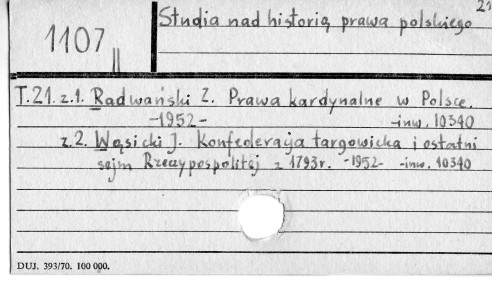 21
Studia nad historią prawa polskiego
1107
||
T.21.z.1. Radwański Z. Prawa kardynalne w Polsce.
-1952- -inw. 10340
z.2. Wąsicki J. Konfederacja targowicka i ostatni
sejm Rzeczypospolitej z 1793r. -1952- -inw. 10340
DUJ. 393/70. 100 000.